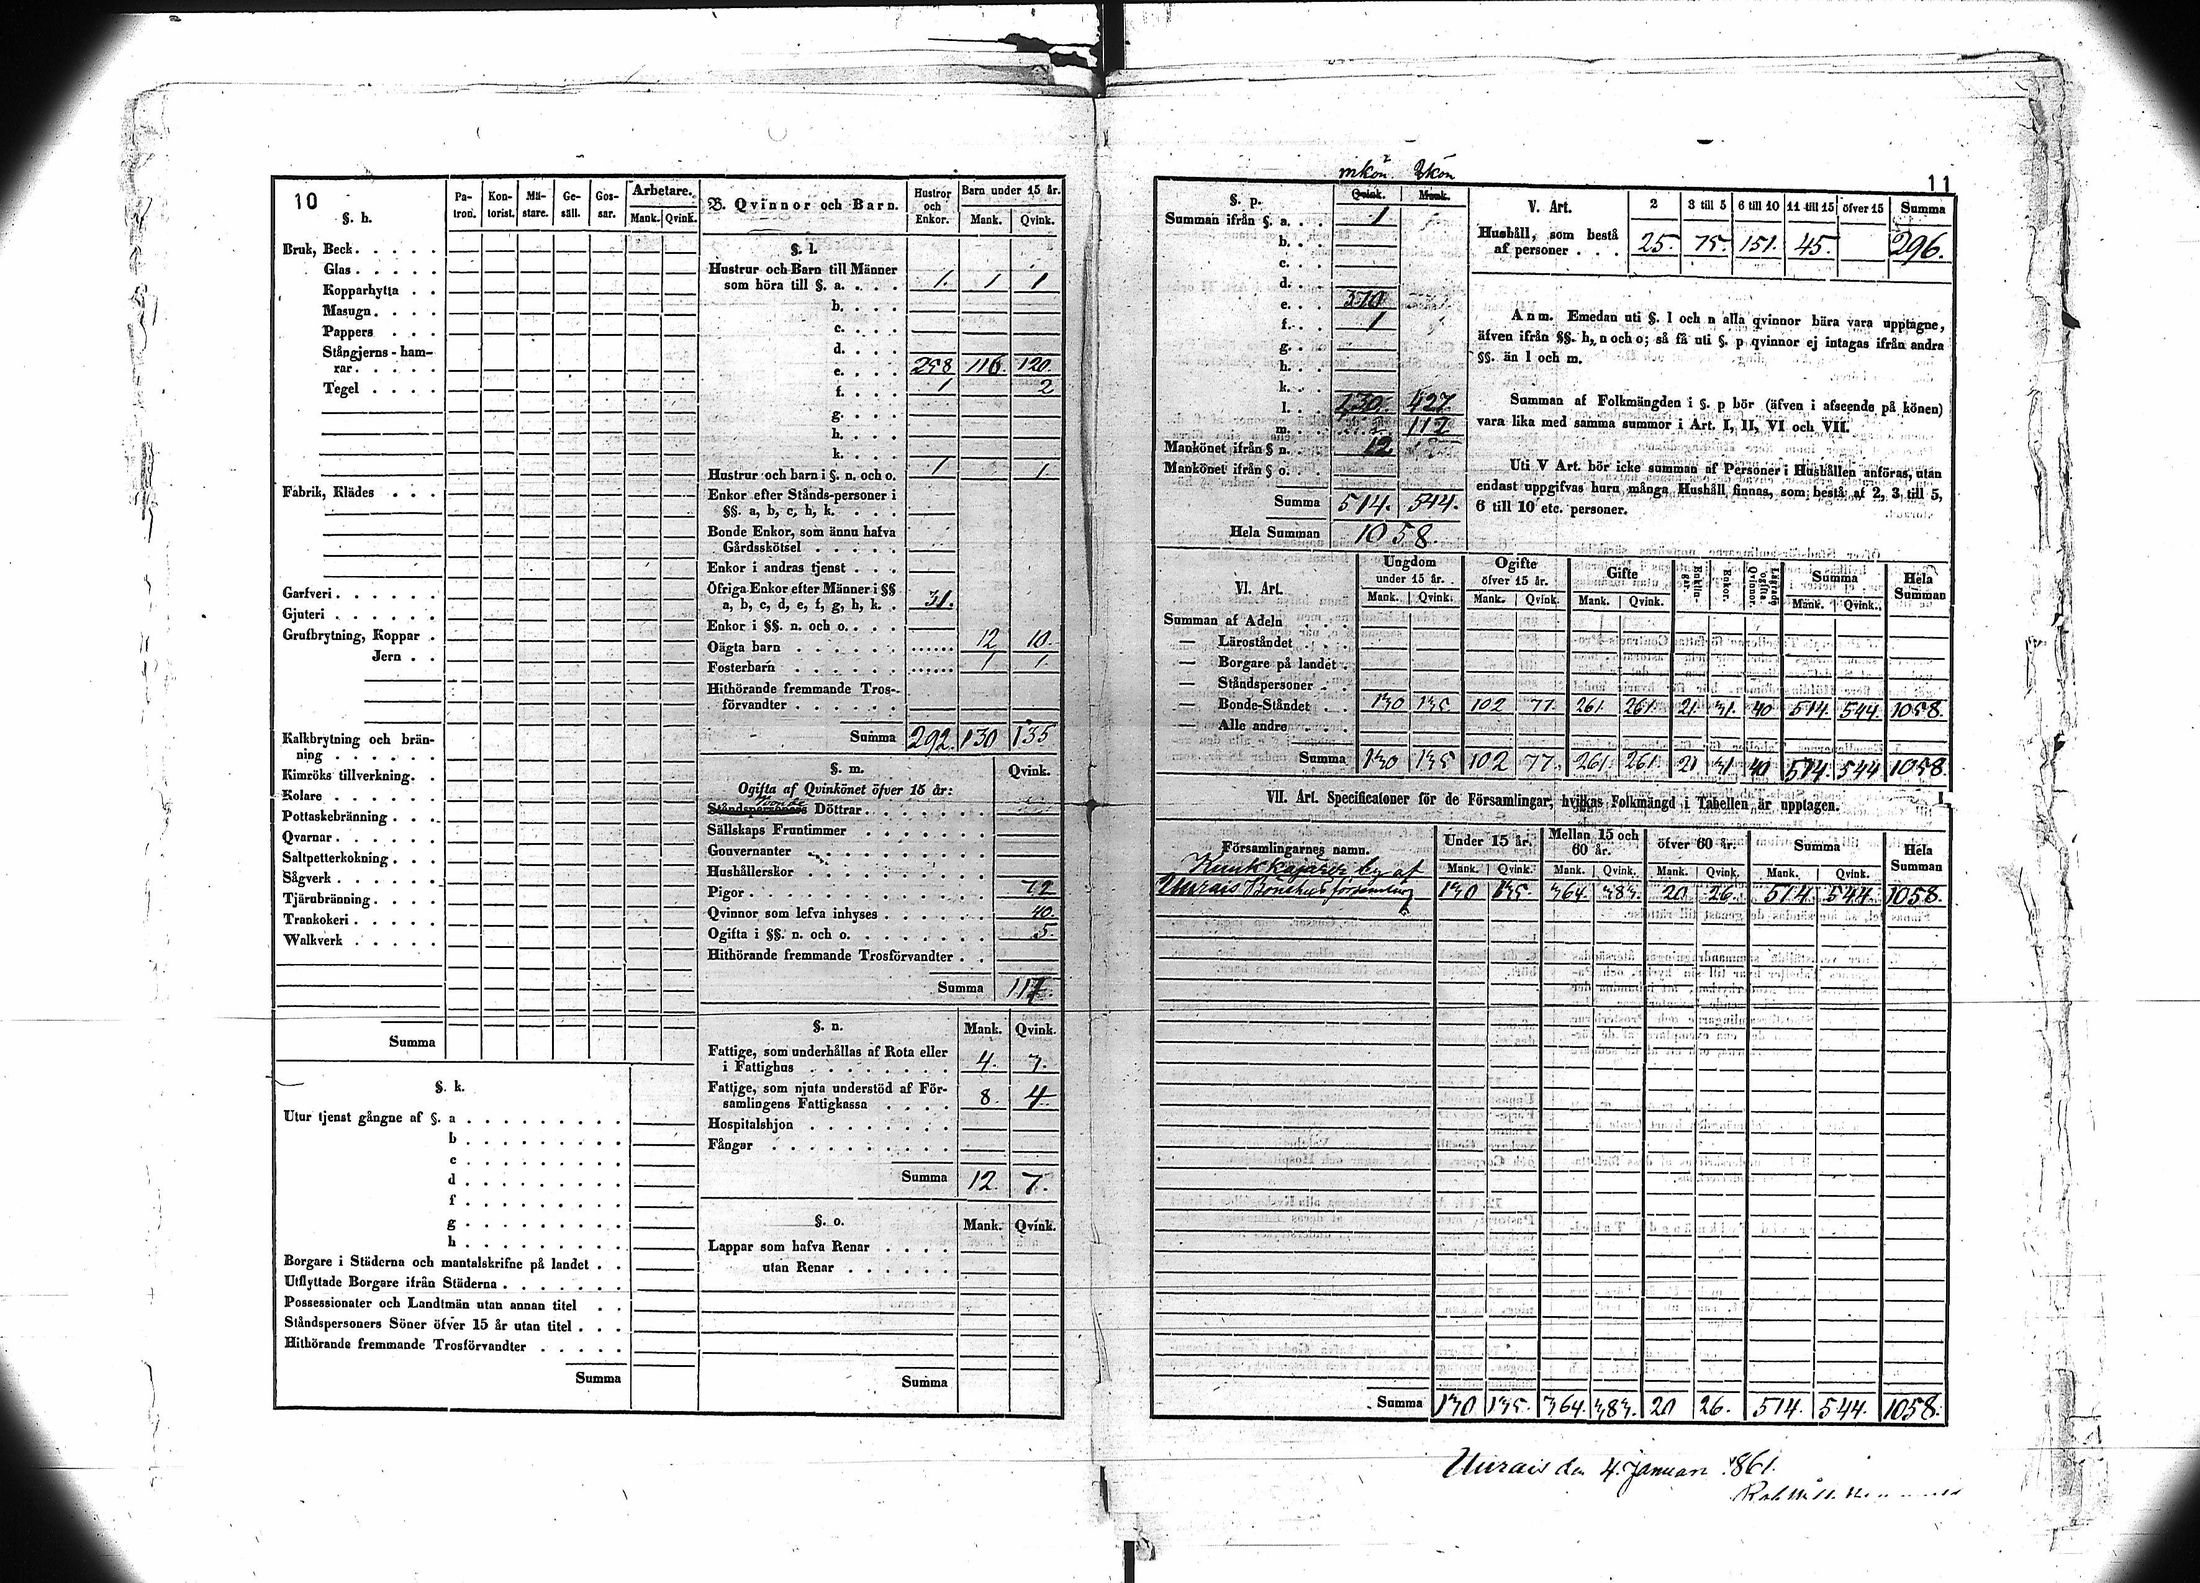 10
§. h.
Pa-tron. Kon-torist. Mä-stare. Ge-säll. Gos-sar. Arbetare. Mank. Qvink.
Bruk, Beck
Glas
Kopparhytta
Masugn
Pappers
Stångjerns-ham-
rar
Tegel
Fabrik, Klädes
Garfveri
Gjuteri
Grufbrytning, Koppar
Jern
Kalkbrytning och brän-
ning
Kimröks tillverkning
Kolare
Pottaskebränning
Qvarnar
Saltpetterkokning
Sågverk
Tjärubränning
Trankokeri
Walkverk
Summa
§. k.
Utur tjenst gångne af §. a
b
c
d
f
g
h
Borgare i Städerna och mantalskrifne på landet
Utflyttade Borgare ifrån Städerna
Possessionater och Landtmän utan annan titel
Ståndspersoners Söner öfver 15 år utan titel
Hithörande fremmande Trosförvandter
Summa
B. Qvinnor och Barn. Hustror och Enkor. Barn under 15 år. Mank. Qvink.
§. l.
Hustrur och Barn till Männer
som höra till §. a. 1. 1 1
b.
c.
d.
e. 258 116. 120.
f. 1 2
g.
h.
k.
Hustrur och barn i §. n. och o. 1 1.
Enkor efter Stånds-personer i
§§. a, b, c, h, k.
Bonde Enkor, som ännu hafva
Gårdsskötsel
Enkor i andras tjenst
Öfriga Enkor efter Männer i §§
a, b, c, d, e, f, g, h, k. 31.
Enkor i §§. n. och o.
Oägta barn 12 10.
Fosterbarn 1 1.
Hithörande fremmande Tros-
förvandter
Summa 292. 130 135
§. m. Qvink.
Ogifta af Qvinkönet öfver 15 år:
Ståndspersoners Döttrar
Sällskaps Fruntimmer
Gouvernanter
Hushållerskor
Pigor 72
Qvinnor som lefva inhyses 40.
Ogifta i §§. n. och o. 5.
Hithörande fremmande Trosförvandter
Summa 117.
§. n. Mank. Qvink.
Fattige, som underhållas af Rota eller
i Fattighus 4. 3.
Fattige, som njuta understöd af För-
samlingens Fattigkassa 8. 4.
Hospitalshjon
Fångar
Summa 12. 7.
§. o. Mank. Qvink.
Lappar som hafva Renar
utan Renar
Summa
11
mkön qkön
§. p. Qvink. Mank.
Summan ifrån §. a. 1
b.
c.
d.
e. 370
f. 1
g.
h.
k.
l. 130. 427.
m. 112
Mankönet ifrån § n. 12
Mankönet ifrån § o.
Summa 514. 544.
Hela Summan 1058.
V. Art. 2 3 till 5 6 till 10 11 till 15 öfver 15 Summa
Hushåll, som bestå
af personer 25. 75. 151. 45. 296.
Anm. Emedan uti §. l och n alla qvinnor bära vara upptagne,
äfven ifrån §§. h, n och o; så få uti §. p qvinnor ej intagas ifrån andra
§§. än l och m.
Summan af Folkmängden i §. p bör (äfven i afseende på könen)
vara lika med samma summor i Art. I, II, VI och VII.
Uti V Art. bör icke summan af Personer i Hushållen anföras, utan
endast uppgifvas huru många Hushåll finnas, som bestå af 2, 3 till 5,
6 till 10 etc. personer.
VI. Art. Ungdom under 15 år. Ogifte öfver 15 år. Gifte Enklin-gar. Enkor. Lägrade ogifta Qvinnor. Summa Hela Summan
Mank. Qvink. Mank. Qvink. Mank. Qvink. Mank. Qvink.
Summan af Adeln
— Läroståndet
— Borgare på landet
— Ståndspersoner
— Bonde-Ståndet 130 135. 102 77. 261. 261. 21. 31. 40 514. 544. 1058.
— Alle andre
Summa 130 135 102 77. 261. 261. 21 31 40 514. 544 1058.
VII. Art. Specificatoner för de Församlingar, hvilkas Folkmängd i Tabellen är upptagen.
Församlingarnes namn. Under 15 år. Mellan 15 och 60 år. öfver 60 år. Summa Hela Summan
Mank. Qvink. Mank. Qvink. Mank. Qvink. Mank. Qvink.
by af
Uurais 130 135. 364. 383. 20 26. 514. 544. 1058.
Summa 130. 135. 364. 383. 20 26. 514. 544. 1058.
Uurais den 4. Januari 1861.